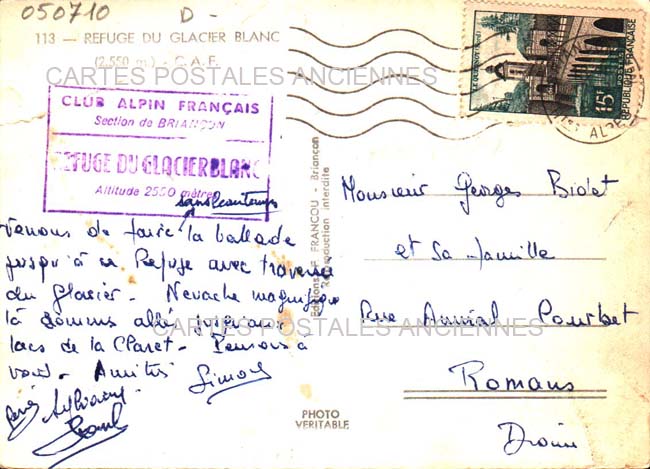 050710 D-
113 — REFUGE DU GLACIER BLANC
(2.550 m.) - C. A. F.
CARTES POSTALES ANCIENNES
CLUB ALPIN FRANÇAIS
Section de BRIANÇON
REFUGE DU GLACIER BLANC
Altitude 2550 mètres
Venons de faire la ballade
jusqu'à ce Refuge avec traversée
du Glacier - Nevache magnifique
là sommes allés jusqu'aux
lacs de la Claret - Pensons à
vous - Amitiés Simone
Sylviane
Editions F. FRANCOU - Briançon
Reproduction interdite
PHOTO
VERITABLE
REPUBLIQUE FRANÇAISE
15F
Monsieur Georges Bidet
et sa famille
Rue Amiral Courbet
CARTES POSTALES ANCIENNES
Romans
Drôme